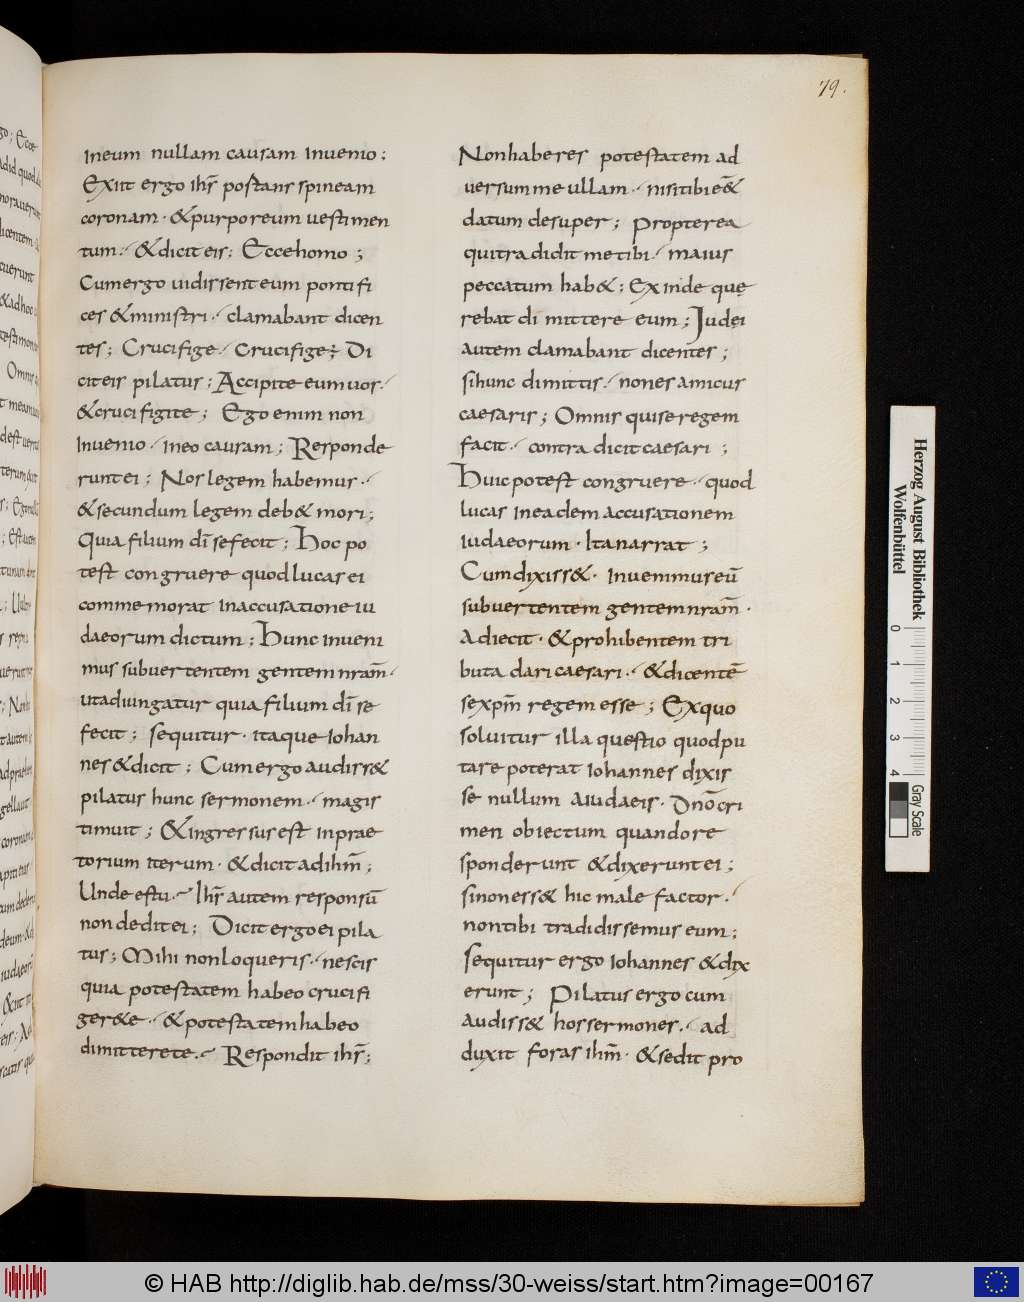 79.
ineum nullam causam inuenio;
Exiit ergo ihs̄ postans spineam
coronam · &purporeum uestimen
tum · &dicit eis; Ecce homo;
Cum ergo uidissent eum pontifi
ces &ministri · clamabant dicen
tes; Crucifige · crucifige; Di
cit eis pilatus; Accipite eum uos ·
&crucifigite; Ego enim non
inuenio · in eo causam; Responde
runt ei; Nos legem habemus ·
&secundum legem deb& mori;
Quia filium dī se fecit; Hoc po
test congruere quod lucas ei
commemorat in accusatione iu
daeorum dictum; Hunc inueni
mus subuertentem gentem nram̄ ·
ut adiungatur quia filium dī se
fecit; sequitur · itaque iohan
nes &dicit; Cum ergo audiss&
pilatus hunc sermonem · magis
timuit; &ingressus est in prae
torium iterum · &dicit ad ihm̄;
Unde es tu · Ihs̄ autem responsū
non dedit ei; Dicit ergo ei pila
tus; Mihi non loqueris · nescis
quia potestatem habeo crucifi
ger&e · &potestatem habeo
dimittere te · Respondit ihs̄;
Non haberes potestatem ad
uersum me ullam · nisi tibi e&̄
datum desuper; Propterea
qui tradidit me tibi · maius
peccatum hab&; Exinde quę
rebat dimittere eum; Iudei
autem clamabant dicentes;
si hunc dimittis · non es amicus
caesaris; Omnis qui se regem
facit · contradicit caesari;
Huic potest congruere · quod
lucas in eadem accusationem
iudaeorum · ita narrat;
Cum dixiss& · inuenimus eū
subuertentem gentem nram̄ ·
adiecit · &prohibentem tri
buta dari caesari · &dicentē
se xpm̄ regem esse; Ex quo
soluitur illa questio quod pu
tare poterat iohannes dixis
se nullum a iudaeis · dn̄o cri
men obiectum quando re
sponderunt &dixerunt ei;
si non ess& hic malefactor ·
non tibi tradidissemus eum;
sequitur ergo iohannes &dix
erunt; Pilatus ergo cum
audiss& hos sermones · ad
duxit foras ihm̄ · &sedit pro
Herzog August Bibliothek
Wolfenbüttel
0 1 2 3 4
Gray Scale
© HAB http://diglib.hab.de/mss/30-weiss/start.htm?image=00167